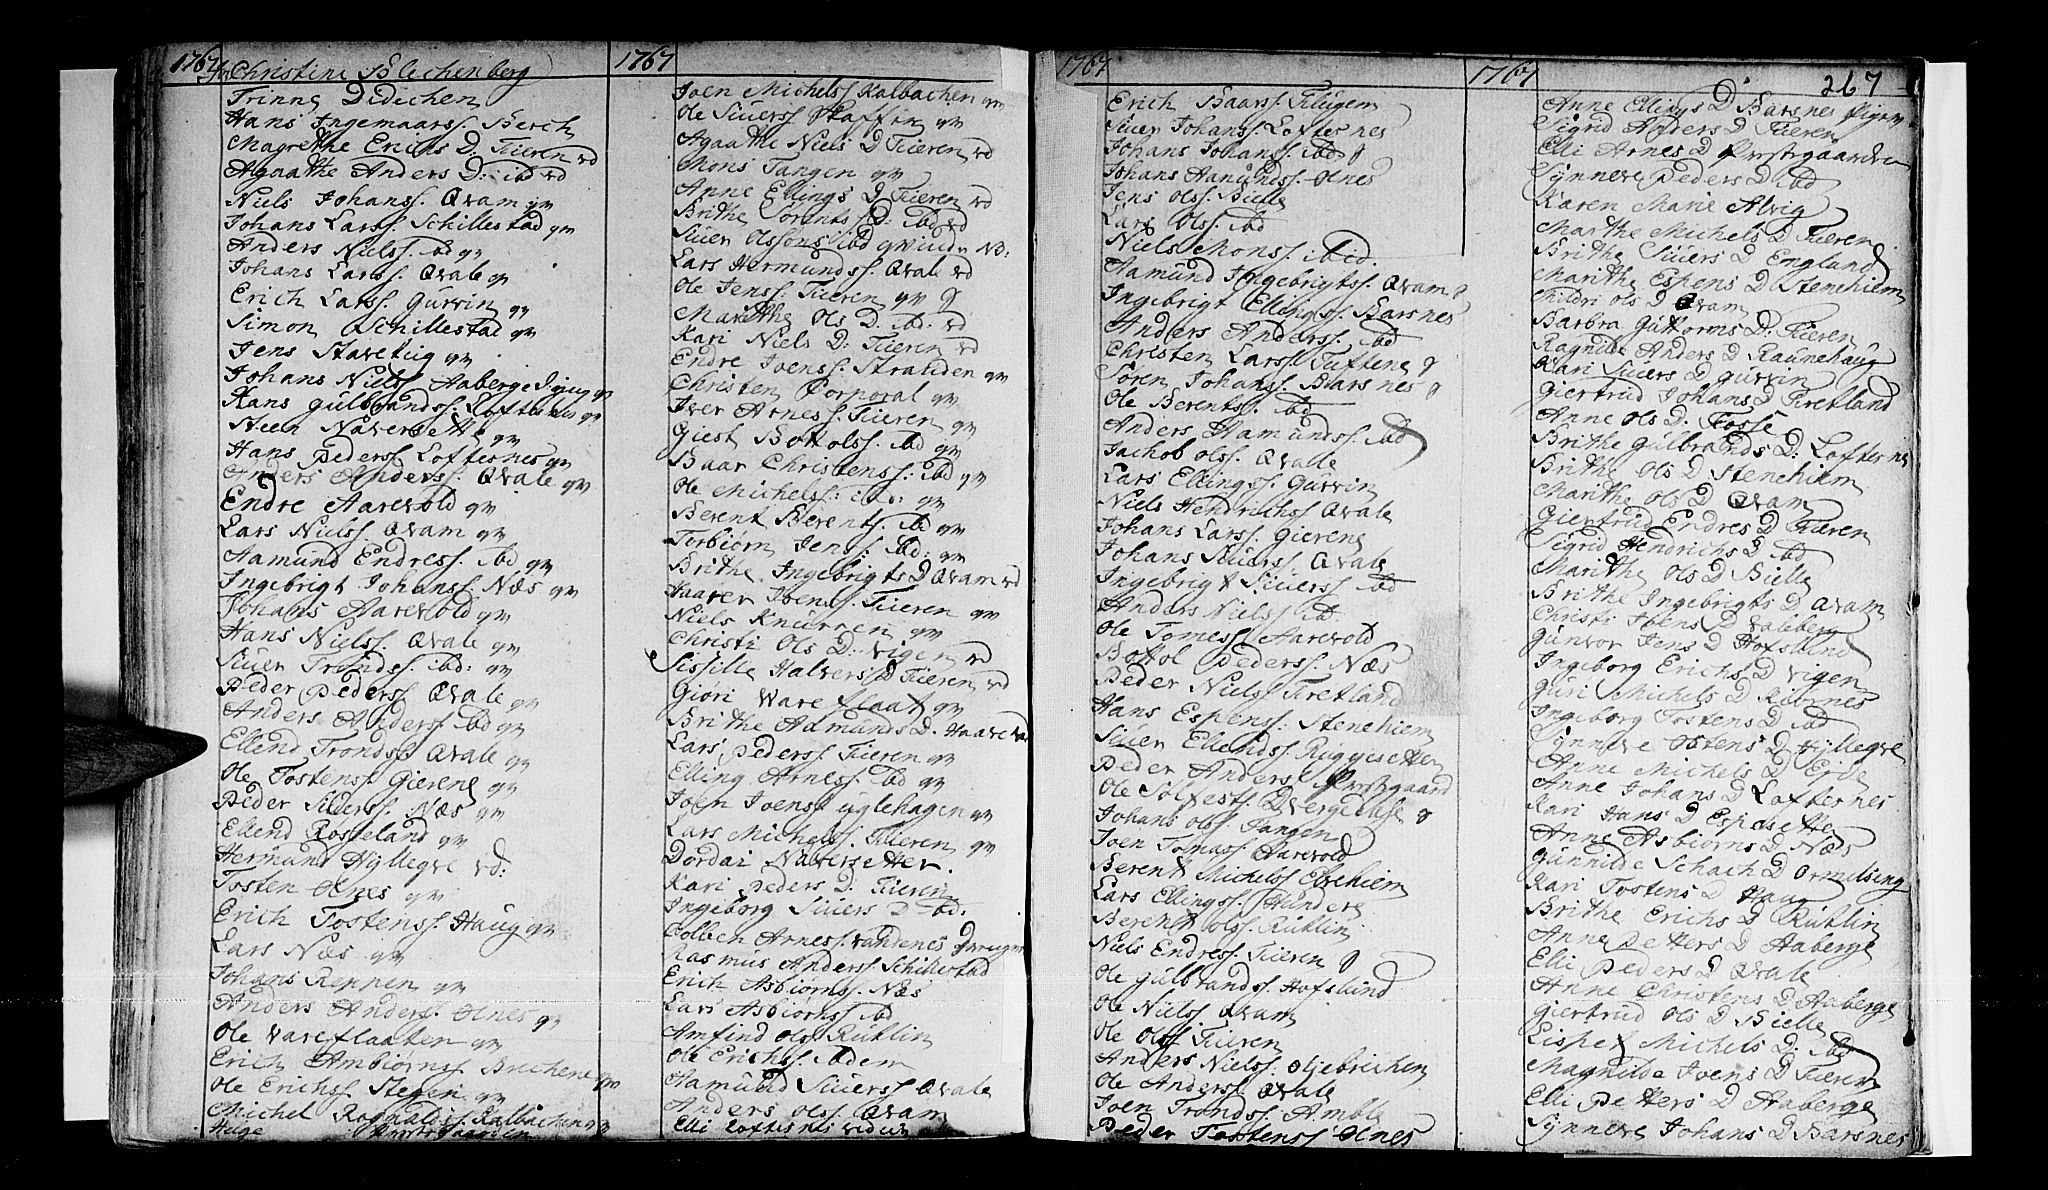 1767
Christine Blechenberg
Trinne Didichen
Hans Ingemaarss. Berch
Magrethe Erichs D. Tieren vd
Agaathe Anders D: ibd vd
Niels Johanss. Qvam qv
Johans Larss. Schillestad qv
Anders Nielss. ibd qv
Johans Larss. Qvale qv
Erich Larss. Gurvin qv
Simon Schillestad qv
Jens Stavetiig qv
Johans Nielss. Aaberge
Hans Gulbrandss. Loftesnes qv
Steen Nåversette qv
Hans Pederss. Loftesnes qv
Anders Anderss. Qvale qv
Endre Aarevold qv
Lars Nielss. Qvam qv
Aamund Endress. ibd qv
Ingebrigt Johanss. Næs qv
Johans Aarevold qv
Hans Nielss. Qvale qv
Siuer Trondss. ibd: qv
Peder Pederss. Qvale qv
Anders Anderss. ibd qv
Ellend Trondss. Qvale qv
Ole Tostenss. Gierene qv
Peder Siuerss. Næs qv
Ellend Rosseland qv
Hermund Hyllegre vd:
Tosten Olnes qv
Erich Tostenss. Haug qv
Lars Næs qv
Johans Reppen qv
Anders Anderss. Olnes qv
Ole Vareflaaten qv
Erich Ambiørnss. Brechene qv
Ole Erichss. Stegen qv
Michel Rognaldss. Kalbachen qv
Hüge Præstegaarden
1767
Joen Michelss. Kalbachen qv
Ole Siuerss. Skaffer qv
Agaathe Niels D Tieren vd
Mons Tangen qv
Anne Ellings D Tieren vd
Brithe Sørens D: ibd vd
Siuer Olssøns ibd
Lars Hermundss. Qvale vd
Ole Jenss. Tieren qv
Marithe Ols D. ibd: vd
Kari Niels D: Tieren vd
Endre Joenss. Stranden qv
Christen Corporal qv
Iver Arness. Tieren qv
Giest Botolss. ibd qv
Baar Christenss. ibd qv
Ole Michelss: ibd: qv
Berent Berentss. ibd qv
Torbiørn Jenss: ibd: qv
Brithe Ingebrigts D Qvam vd
Haarer Joenss. Tieren qv
Niels Knurren qv
Christi Ols D: Vigen vd
Sissille Halvors D Tieren vd
Giøri Vareflaat qv
Brithe Aamunds D. Haareva
Lars Pederss Tieren qv
Elling Arness. ibd qv
Joen Joenss. Uglehagen qv
Lars Michelss. Tieren qv
Dordai Naversetter.
Kari Peders D: Tieren
Ingeborg Siuers D ibd.
Colben Arness. Vandenes
Rasmus Anderss. Schillestad
Erich Asbiørnss. Næs
Lars Asbiørnss ibd
Amfind Olss Rutlin
Ole Erichss. ibdem
Aamund Siuerss. Qvale
Anders Olss. Qvam
Elli Loftesnes
1767
Erich Baarss. Flugem
Siuer Johanss. Loftesnes
Johans Johanss. ibd
Johans Hamundss. Olnes
Jens Olss. Bielle
Lars Olss. ibd
Niels Monss. ibid.
Aamund Ingebrigtss. Qvam
Ingebrigt Ellingss. Barsnes
Anders Anderss. ibd
Christen Larss. Tuftene
Søren Johanss. Barsnes
Ole Berentss. ibd
Anders Hamundss. ibd
Jachob Olss. Qvale
Lars Ellingss. Gurvin
Niels Hendrichss Qvale
Johans Larss. Gierene
Johans Siuerss. Qvale
Ingebrigt Siuerss ibd
Anders Nielss ib.
Ole Tomess. Aarevold
Botol Pederss. Næs
Peder Nielss Fretland
Hans Espenss. Stenehiem
Siuer Ellendss. Ryggesetter
Peder Anderss. Præstegaard
Ole Solfestss. Dvergedahl
Johans Olss. Tangen
Joen Tomass. Aarevold
Berent Michelss Ebrehiem
Lars Ellingss. Hundere
Berent Olss. Rutlin
Niels Endress. Tieren
Ole Gulbrandss. Hofslund
Ole Nielss Qvam
Ole Olss. Tieren
Anders Nielss. Oljebrechen
Ole Anderss. Qvale
Joen Trondss. Amble
Peder Tostenss Olnes
1767
267
Anne Ellings D Barsnes
Sigrid Anders D Tieren
Elli Arnes D Præstegaarden
Synneve Peders D ibd
Karen Marie Alvig
Marthe Michels D Tieren
Brithe Siuers D England
Marithe Espens D Stenehiem
Childri Ols D Qvam
Barbra Guttorms D: Tieren
Ragnilde Anders D Raunehaug
Kari Siuers D Gurvin
Giertrud Johans D Fretland
Anne Ols D. Fosse
Brithe Gulbrands D: Loftesnes
Brithe Ols D Stenehiem
Marithe Ols D Qvam
Giertrud Endres D Tieren
Sigrid Hendrichs D ibd
Marithe Ols D Bielle
Brithe Ingebrigts D Qvam
Christi Joens D Valeberg
Gunvor Jens D Hofslund
Ingeborg Erichs D Vigen
Guri Michels D Ribnes
Ingeborg Tostens D ibd
Synneve Ostens D Hyllegre
Anne Michels D Eide
Anne Johans D Loftesnes
Kari Hans D Espesette
Anne Asbiørns D Næs
Gunnilde Schach D Ormelseng
Kari Tostens D Haug
Brithe Erichs D Rutlin
Anne Petters D Aaberge
Elli Peders D Qvale
Anne Christens D Aaberge
Giertrud Ols D Bielle
Lisbet Michels D: ibd
Magnilde Joens D Tieren
Elli Petters D Aaberge
Synneve Johans D Barsnes